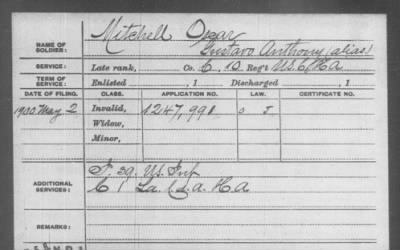 NAME OF SOLDIER: Mitchell Oscar
Gustavo Anthony (alias)
SERVICE: Late rank, Co. C, 10 Reg't U.S.C.H.A
TERM OF SERVICE: Enlisted , 1 Discharged , 1
DATE OF FILING. CLASS. APPLICATION NO. LAW. CERTIFICATE NO.
1900 May 2 Invalid, 1247,991
Widow,
Minor,
ADDITIONAL SERVICES: F. 39. U.S. Inf
C 1 La. C.d.A. H.A
REMARKS: